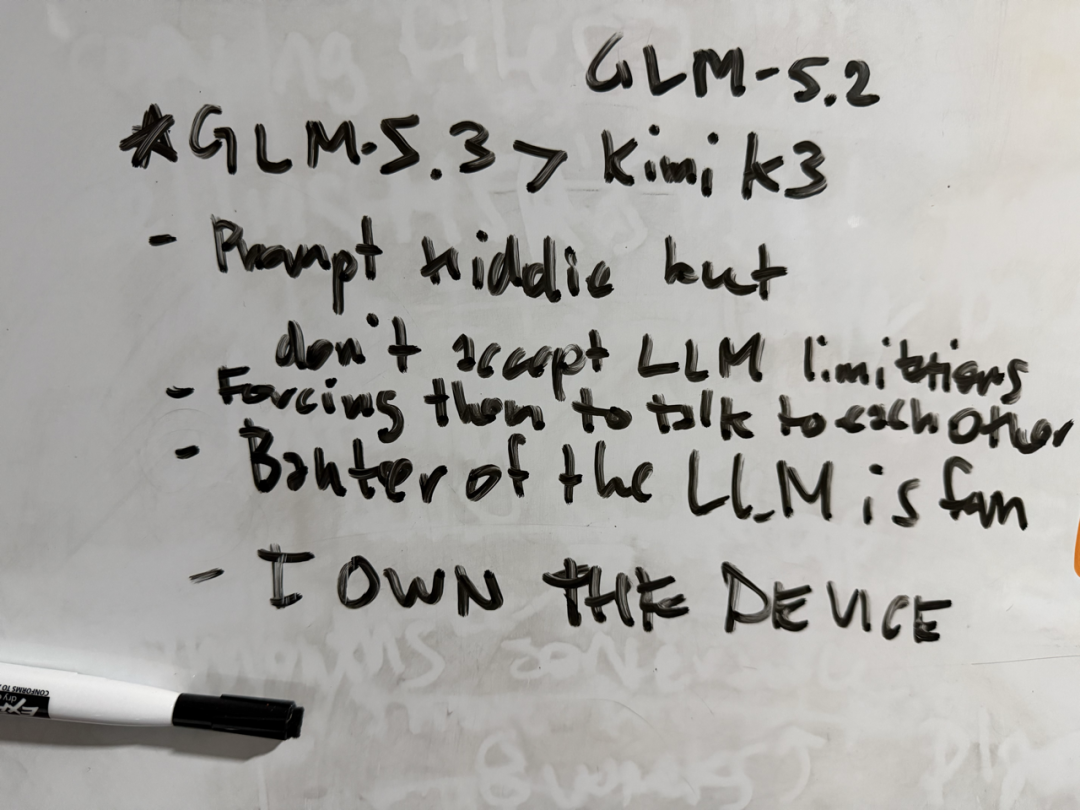 GLM-5.2
*GLM-5.3 > Kimi k3
- Prompt kiddie but
don't accept LLM limitations
- Forcing them to talk to each other
- Banter of the LLM is fun
- I OWN THE DEVICE
CONFORMS TO
8 weeks ↑